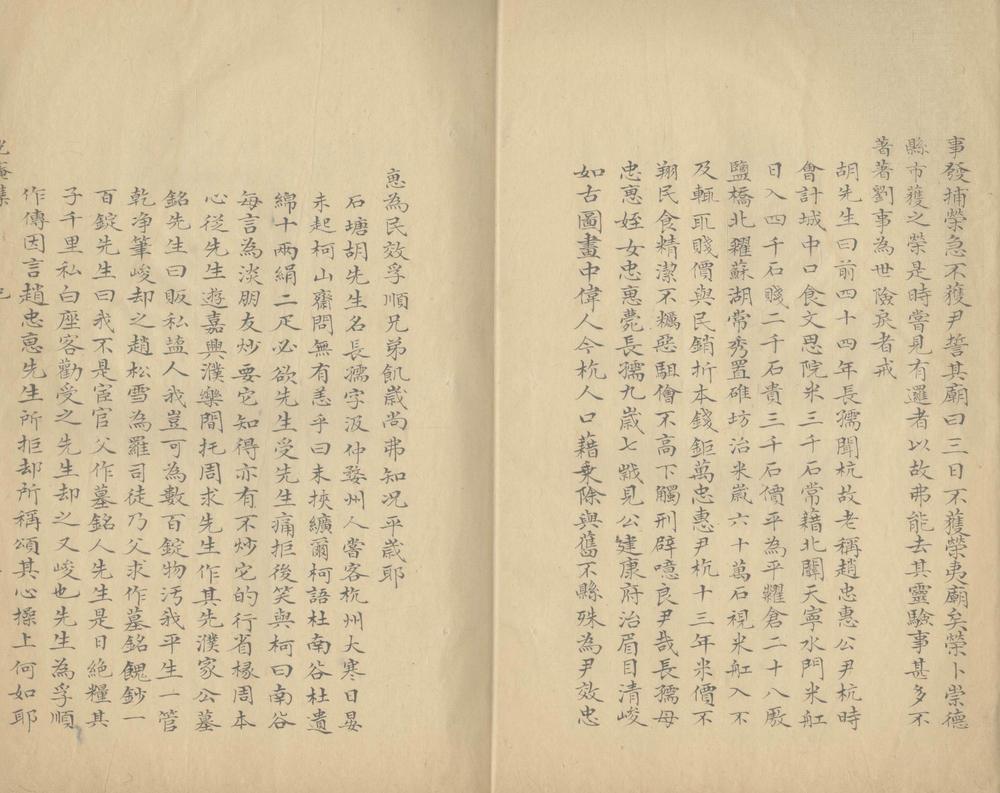 事發捕榮急不獲尹誓其廟曰三日不獲榮夷廟矣榮卜崇德
縣市獲之榮是時嘗見有邏者以故弗能去其靈驗事甚多不
著著劉事為世險戾者戒
胡先生曰前四十四年長孺聞杭故老稱趙忠惠公尹杭時
會計城中口食文思院米三千石常藉北關天寧水門米舡
日入四千石賤二千石貴三千石價平為平糴倉二十八厫
鹽橋北糴蘇湖常秀置碓坊治米歲六十萬石視米舡入不
及輒取賤價與民銷折本錢鉅萬忠惠尹杭十三年米價不
翔民食精潔不糲惡駔儈不高下觸刑辟噫良尹哉長孺母
忠惠姪女忠惠薨長孺九歲七歲見公建康府治眉目清峻
如古圖畫中偉人今杭人口藉乗除與舊不縣殊為尹效忠
惠為民效孚順兄弟飢歲尚弗知况平歲耶
石塘胡先生名長孺字汲仲婺州人嘗客杭州大寒日晏
未起柯山齋問無有恙乎曰未挾纊爾柯語杜南谷杜遺
綿十兩絹二疋必欲先生受先生痛拒後笑與柯曰南谷
每言為淡朋友炒要它知得亦有不炒它的行省椽周本
心從先生遊嘉興濮樂閒托周求先生作其先濮家公墓
銘先生曰販私盐人我豈可為數百錠物汚我平生一管
乾净筆峻却之趙松雪為羅司徒乃父求作墓銘餽鈔一
百錠先生曰我不是宦官父作墓銘人先生是日絶糧其
子千里私白座客勸受之先生却之又峻也先生為孚順
作傳因言趙忠惠先生所拒却所稱頌其心操上何如耶